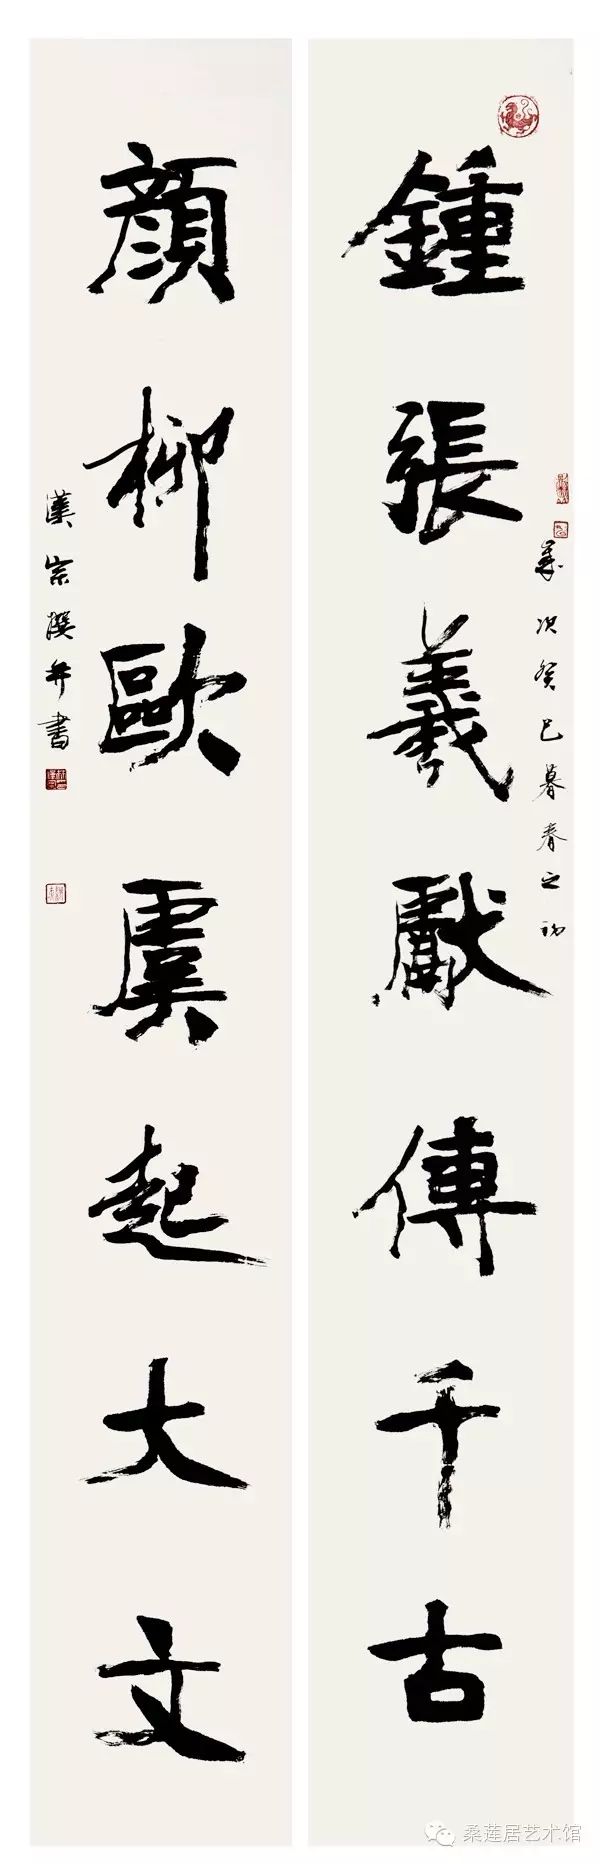 鍾張羲獻傳千古
歲次癸巳暮春之初
顏柳歐虞起大文
漢宗撰并書
桑莲居艺术馆